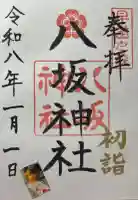 奉拝
八坂神社
初詣
令和八年一月一日
八坂